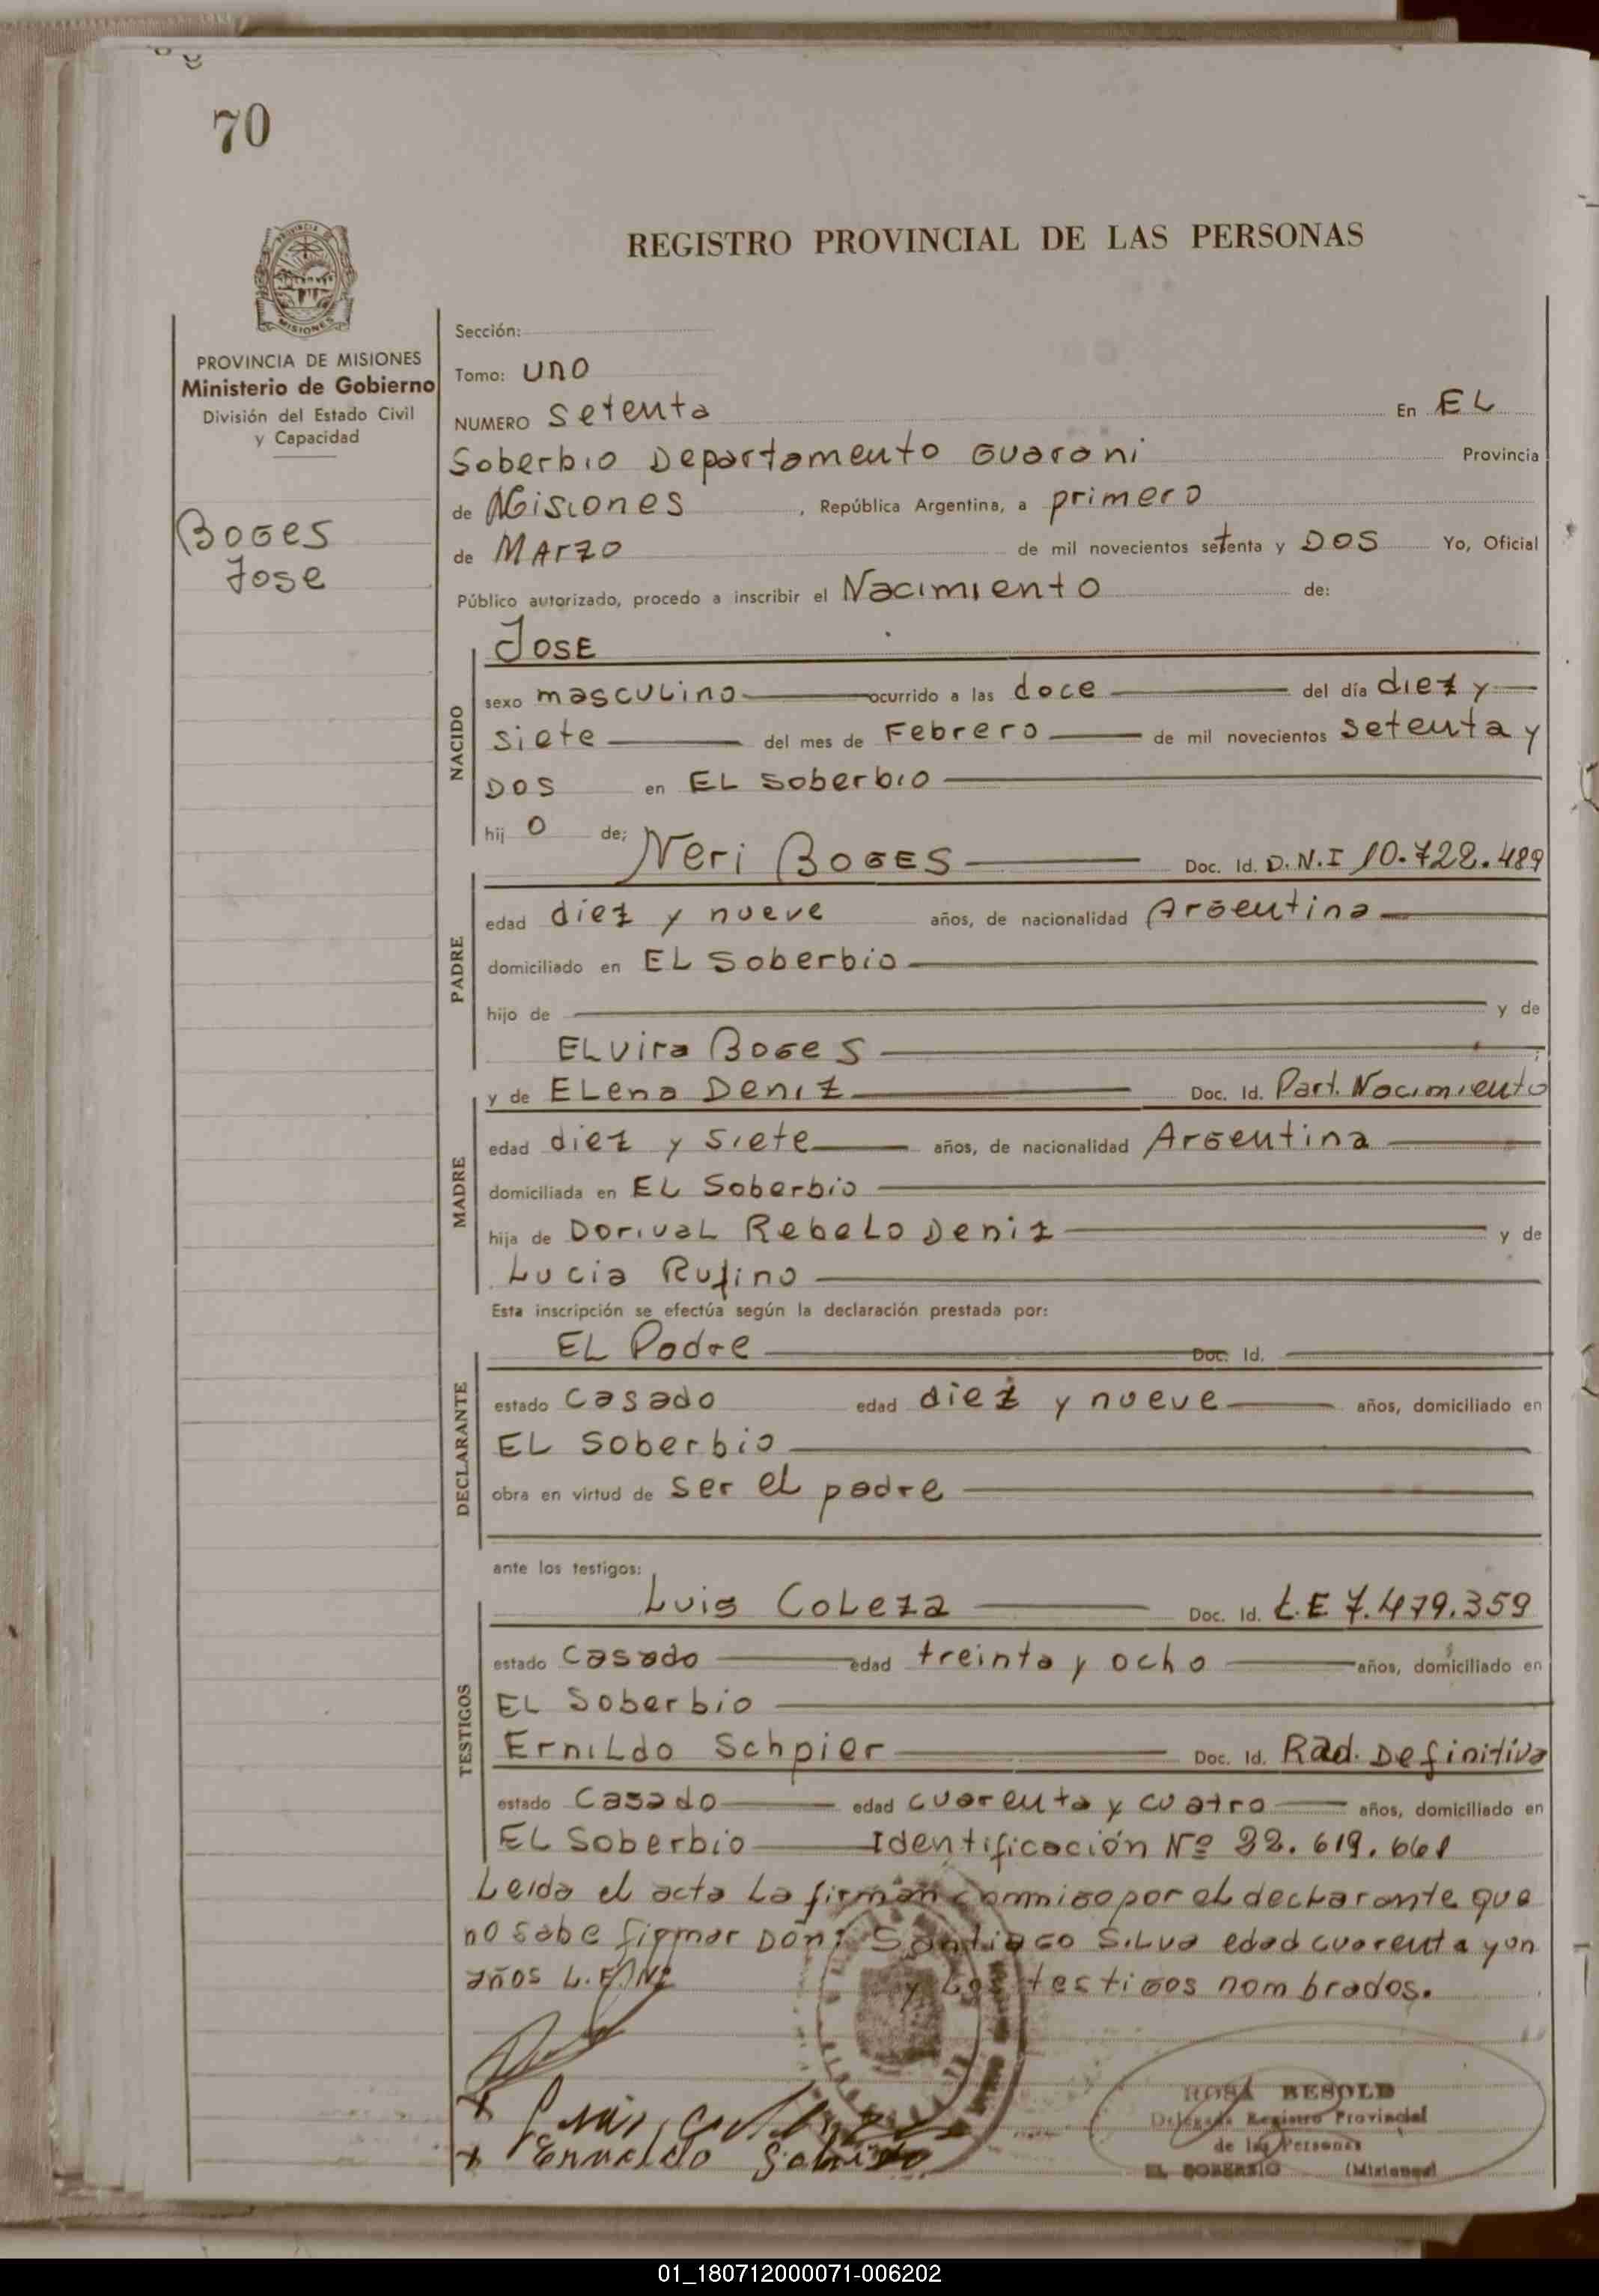 70
REGISTRO PROVINCIAL DE LAS PERSONAS
PROVINCIA DE MISIONES
Ministerio de Gobierno
División del Estado Civil
y Capacidad
Boges
Jose
Sección:
Tomo: uno
NUMERO Setenta En EL
Soberbio Departamento Guarani Provincia
de Misiones, República Argentina, a primero
de Marzo de mil novecientos setenta y DOS Yo, Oficial
Público autorizado, procedo a inscribir el Nacimiento de:
NACIDO
JOSE
sexo masculino ocurrido a las doce del día diez y
siete del mes de Febrero de mil novecientos setenta y
DOS en EL Soberbio
hij o de;
Neri BOGES Doc. Id. D.N.I 10.728.489
PADRE
edad diez y nueve años, de nacionalidad Argentina
domiciliado en EL Soberbio
hijo de y de
ELvira Boges
y de ELena Deniz Doc. Id. Part. Nacimiento
MADRE
edad diez y siete años, de nacionalidad Argentina
domiciliada en EL Soberbio
hija de Dorival Rebelo Deniz y de
Lucia Rufino
Esta inscripción se efectúa según la declaración prestada por:
EL Padre Doc. Id.
DECLARANTE
estado Casado edad diez y nueve años, domiciliado en
EL Soberbio
obra en virtud de ser el padre
ante los testigos:
Luis Coleza Doc. Id. L.E 7.479.359
TESTIGOS
estado Casado edad treinta y ocho años, domiciliado en
EL Soberbio
Ernildo Schpier Doc. Id. Rad. Definitiva
estado Casado edad cuarenta y cuatro años, domiciliado en
EL Soberbio Identificación Nº 32.619.661
Leida el acta la firman conmigo por el declarante que
no sabe firmar Don: Santiago Silva edad cuarenta y un
años L.E. Nº y los testigos nombrados.
ROSA BESOLD
Delegada Registro Provincial
de las Personas
EL SOBERBIO (Misiones)
01_180712000071-006202